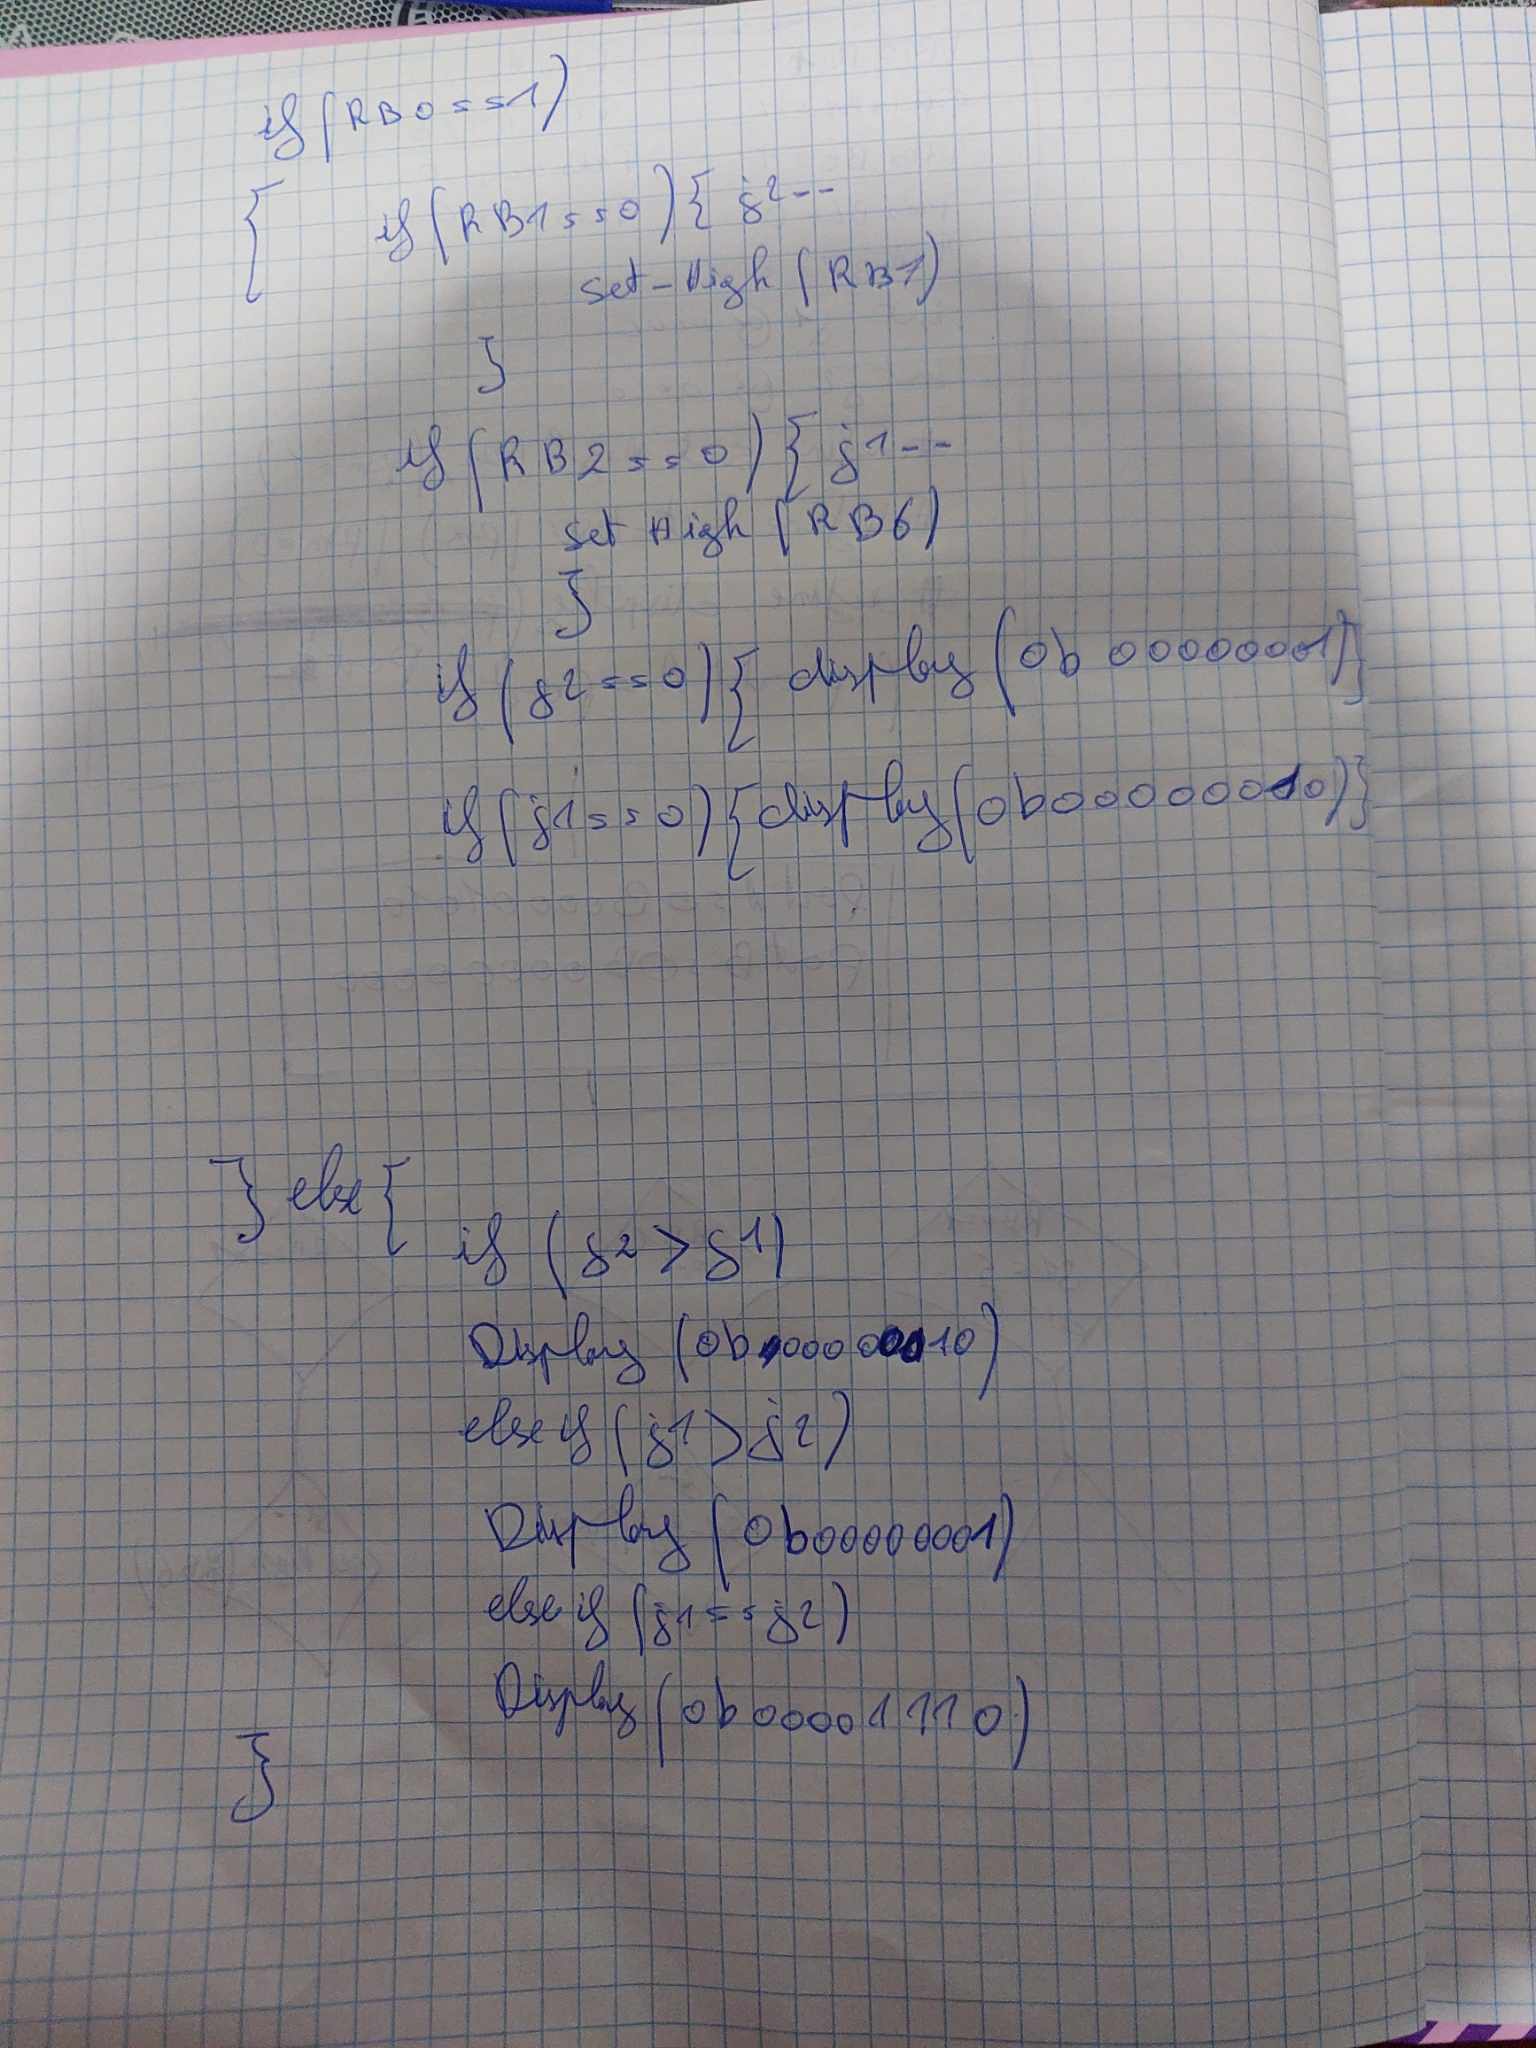 if (RB0==1)
{ if (RB1==0){ j2--
set-High (RB7)
}
if (RB2==0){ j1--
set High (RB6)
}
if (j2==0){ display (0b 00000001)}
if (j1==0){display(0b00000010)}
} else {
if (j2>j1)
Display (0b00000010)
else if (j1>j2)
Display (0b00000001)
else if (j1==j2)
Display (0b00001110)
}